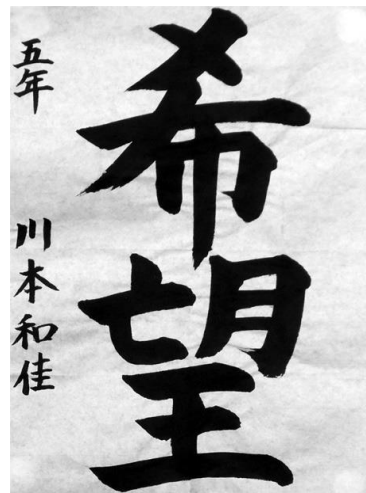 希望
五年 川本和佳